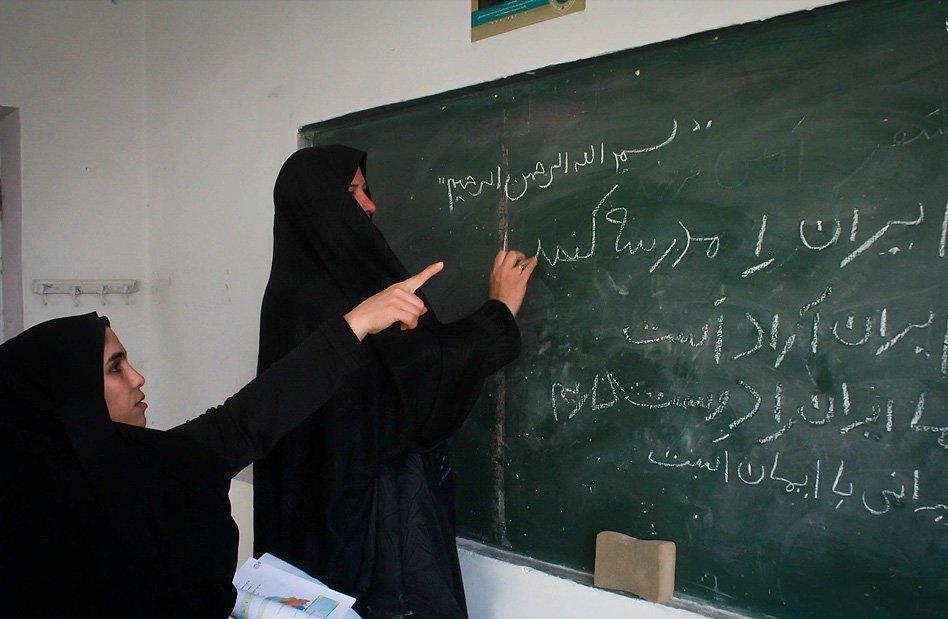 "بسم الله الرحمن الرحیم"
ایران را مدرسه کنید
ایران آزاد است
ما ایران را دوست داریم
با ایمان است